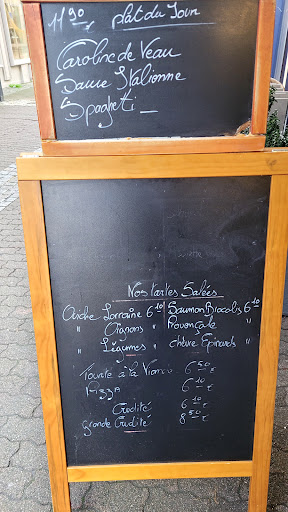 11,90 plat du Jour
Caroline de Veau
Sauce Italienne
Spaghetti
Nos tartes Salées
Quiche Lorraine 6,10 Saumon Brocolis 6,10
" Oignons " Provençale "
" Légumes " chèvre Epinards "
Tourte à la Viande 6,50 €
Pizza 6,10 €
Crudité 6,10 €
grande Crudité 8,50 €